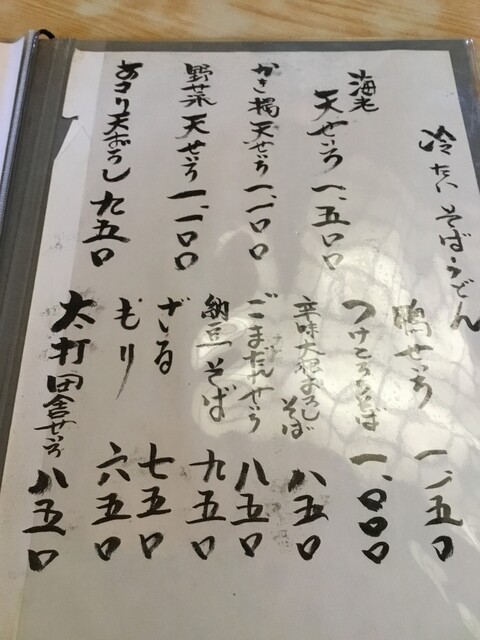 冷たいそばうどん
海老天せいろ 一、五〇〇
かき揚天せいろ 一、一〇〇
野菜天せいろ 一、一〇〇
あさり天おろし 九五〇
鴨せいろ 一、一五〇
つけとろろそば 一、〇〇〇
辛味大根おろしそば 八五〇
ごまだれせいろ 八五〇
納豆そば 九五〇
ざる 七五〇
もり 六五〇
太打田舎せいろ 八五〇